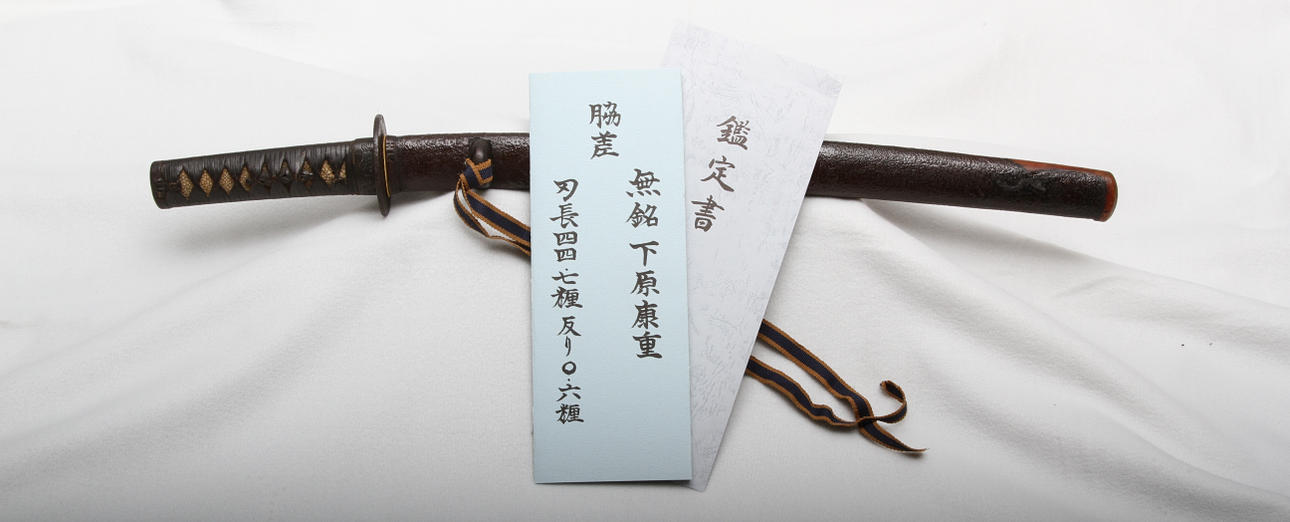 脇差
無銘 下原康重
刃長四四・七糎 反り〇・六糎
鑑定書